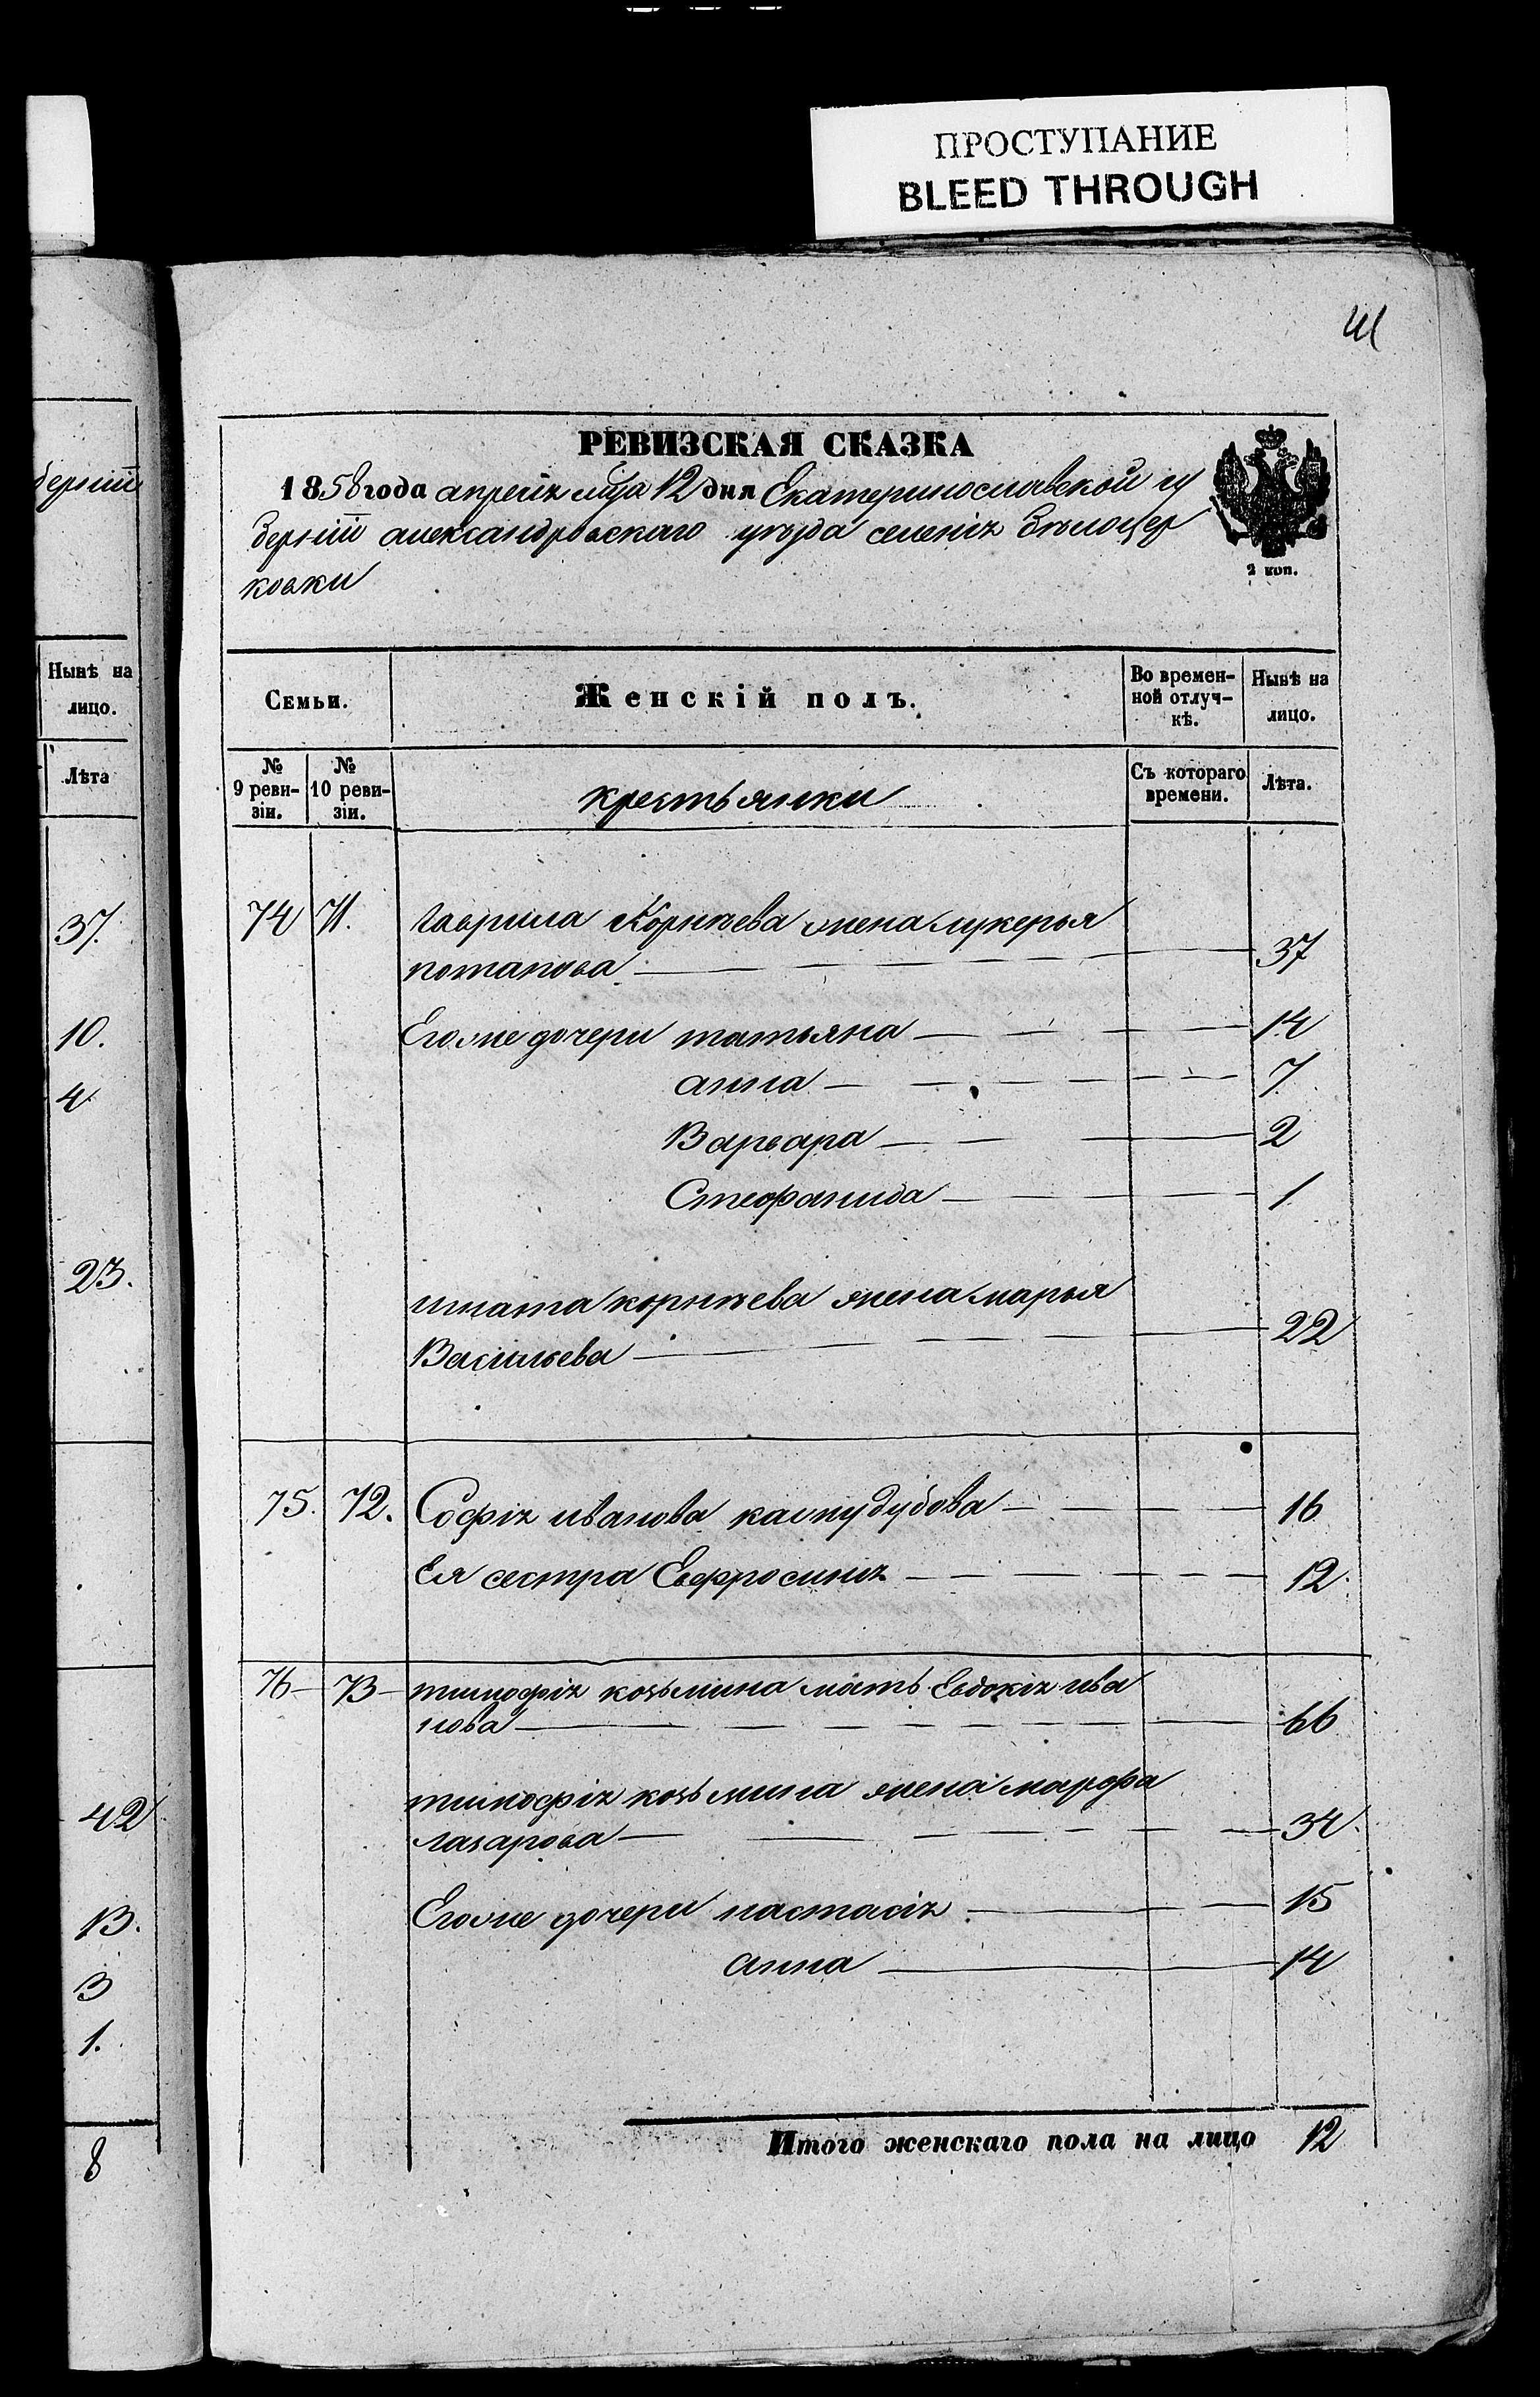 ПРОСТУПАНИЕ
BLEED THROUGH
41
РЕВИЗСКАЯ СКАЗКА
1858 года апреля мца 12 дня Екатеринославской гу
берніи александровскаго уѣзда селенія бѣлоцер
ковки
2 коп.
берніи
Семьи.
Женскій полъ.
Во времен-
ной отлуч-
кѣ.
Нынѣ на
лицо.
№
9 реви-
зіи.
№
10 реви-
зіи.
крестьянки
Съ котораго
времени.
Лѣта.
Нынѣ на
лицо.
Лѣта
74 71. Гаврила Корнѣева жена лукерья
потапова 37
Его же дочери татьяна 14
анна 7
Варвара 2
Стефанида 1
игната корнѣева жена марья
Васильева 22
75. 72. Софія иванова 16
Ея сестра Евфросинія 12.
76 73 тимофія козьмина мать Евдокія ива
нова 66
тимофія козьмина жена марфа
лазарова 34.
Его же дочери настасія 15
анна 14
Итого женскаго пола на лицо 12
37.
10.
4
23.
42
13.
3
1.
8